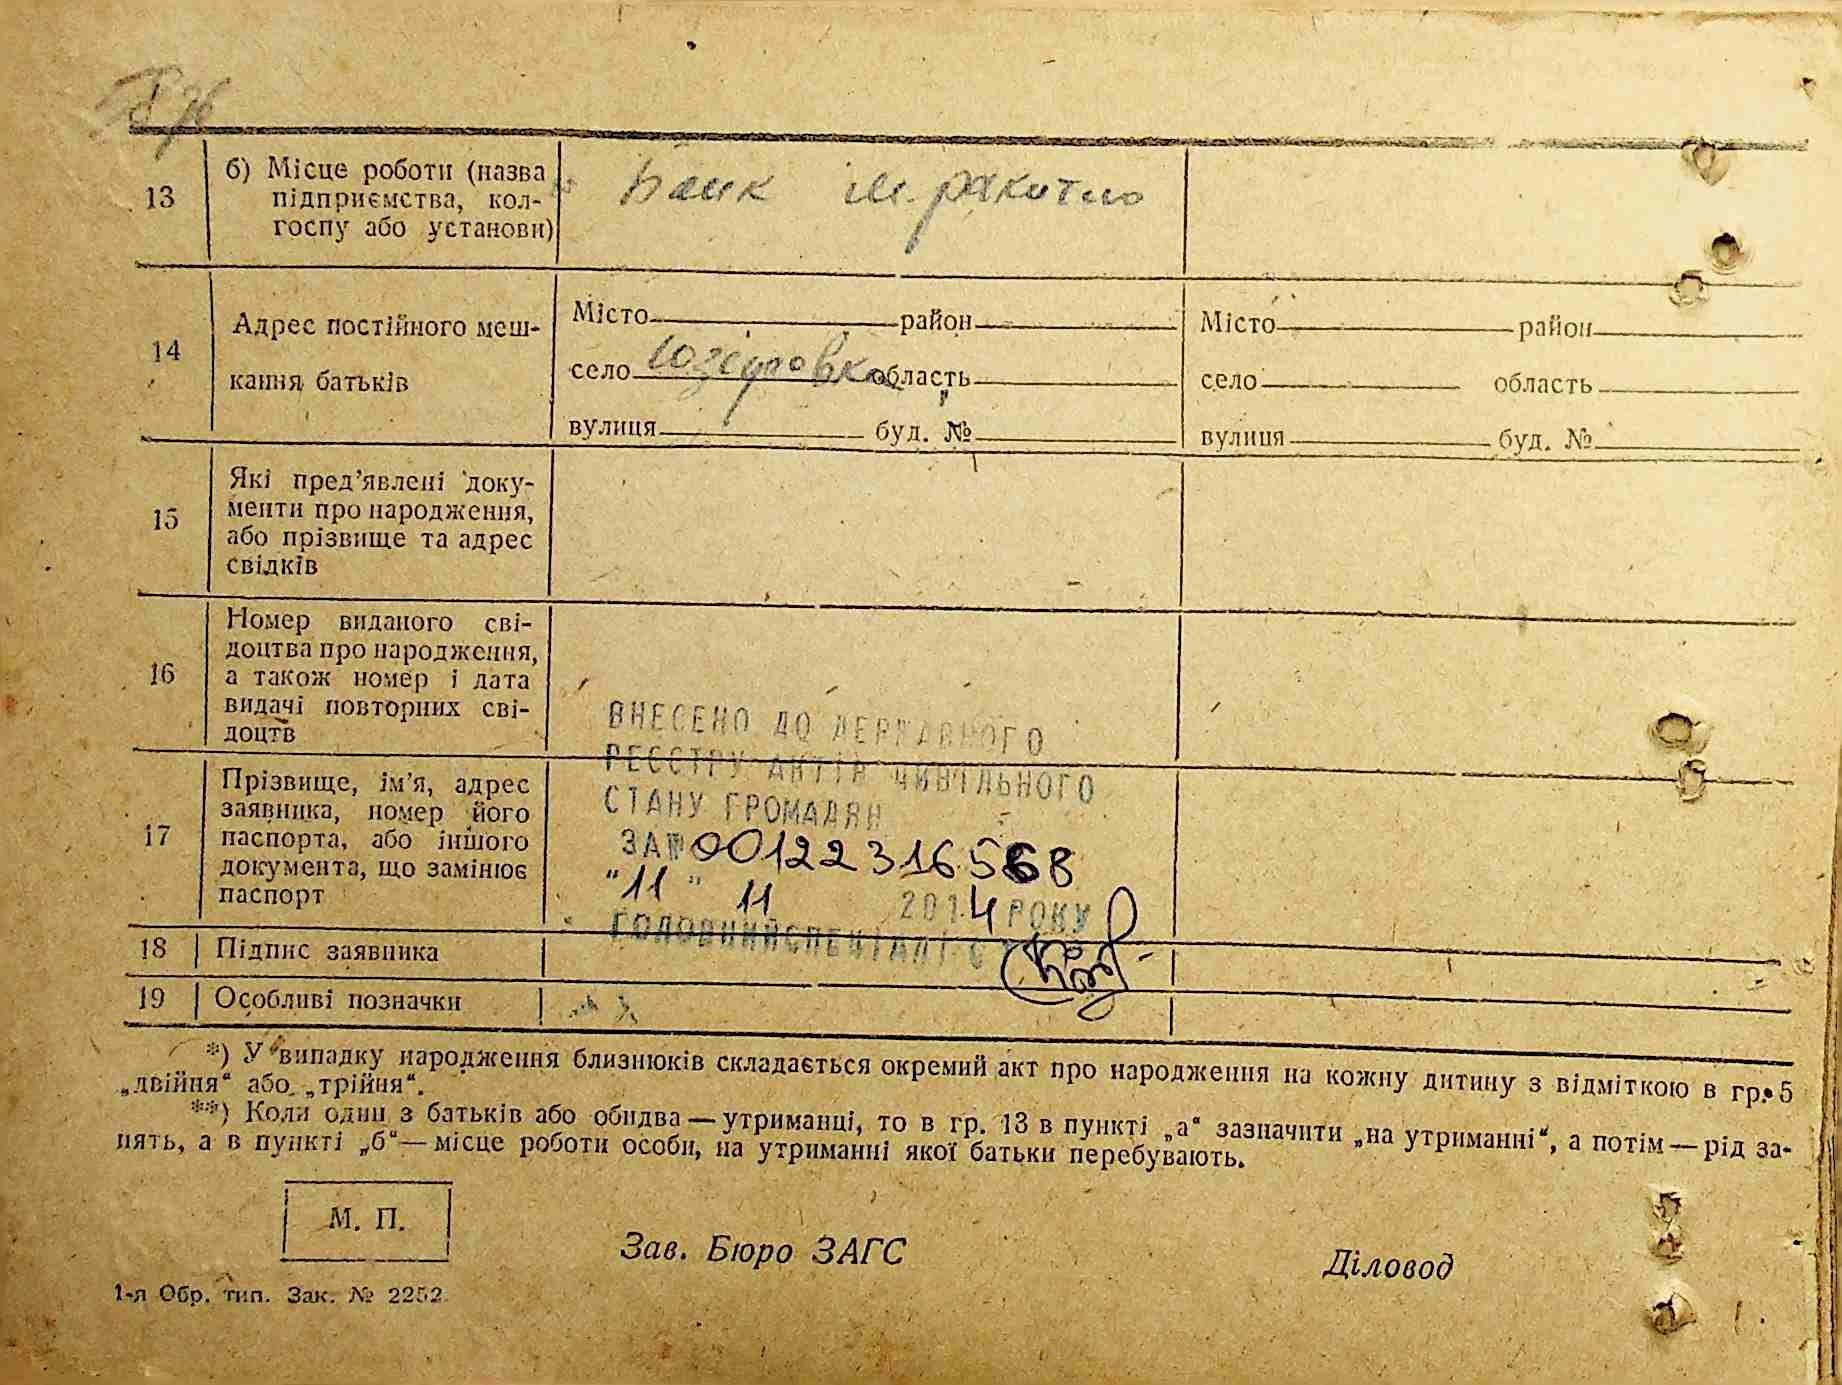 13
б) Місце роботи (назва
підприємства, кол-
госпу або установи)
Банк м. ракитно
14
Адрес постійного меш-
кання батьків
Місто район
село Юзефовка область
вулиця буд. №
Місто район
село область
вулиця буд. №
15
Які пред’явлені доку-
менти про народження,
або прізвище та адрес
свідків
16
Номер виданого сві-
доцтва про народження,
а також номер і дата
видачі повторних сві-
доцтв
ВНЕСЕНО ДО ДЕРЖАВНОГО
РЕЄСТРУ АКТІВ ЦИВІЛЬНОГО
СТАНУ ГРОМАДЯН
ЗА № 00122316568
"11" 11 2014 РОКУ
ГОЛОВНИЙ СПЕЦІАЛІСТ
17
Прізвище, ім’я, адрес
заявника, номер його
паспорта, або іншого
документа, що замінює
паспорт
18 Підпис заявника
19 Особливі позначки
*) У випадку народження близнюків складається окремий акт про народження на кожну дитину з відміткою в гр. 5
„двійня“ або „трійня“.
**) Коли один з батьків або обидва — утриманці, то в гр. 13 в пункті „а“ зазначити „на утриманні“, а потім — рід за-
нять, а в пункті „б“ — місце роботи особи, на утриманні якої батьки перебувають.
М. П.
Зав. Бюро ЗАГС
Діловод
1-я Обр. тип. Зак. № 2252